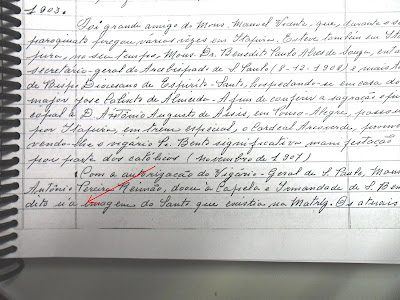 1903.
Foi grande amigo de Mons. Manoel Vicente, que, durante o seu
paroquiato pregou várias vezes em Itapira. Esteve também em Ita-
pira, no seu tempo, Mons. Dr. Benedito Paulo Alves de Souza, então
secretário-geral do Arcebispado de S. Paulo (8-12-1908) e mais tarde
Bispo Diocesano de Espírito-Santo, hospedando-se em casa do
major José Calisto de Almeida. A fim de conferir a sagração epis-
copal a D. Antônio Augusto de Assis, em Pouso-Alegre, passou
por Itapira, em trem especial, o Cardeal Arcoverde, promo-
vendo-lhe o vigário Pe. Bento significativa manifestação
por parte dos católicos (novembro de 1907)
Com a autorização do Vigário-Geral de S. Paulo, Mons.
Antônio Pereira Reimão, doou à Capela e Irmandade de S. Bene-
dito u'a imagem do Santo que existia na Matriz. Os atuais